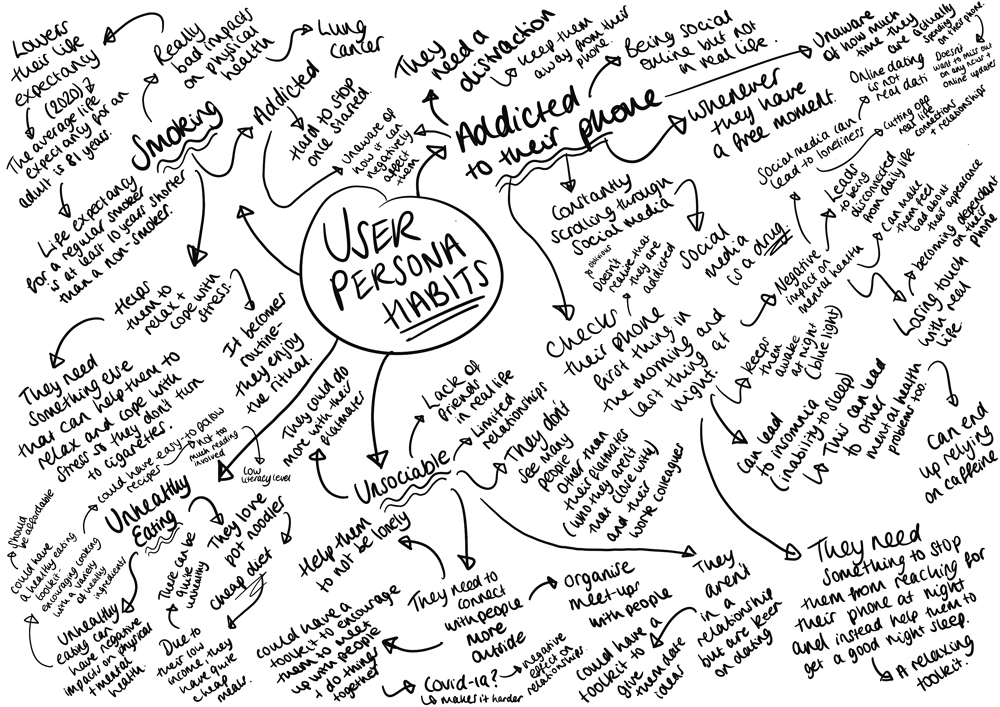 USER
PERSONA
HABITS
Smoking
Really
bad impacts
on physical
health
Lung
cancer
Lowers
their life
expectancy
(2020)
The average life
expectancy for an
adult is 81 years.
Life expectancy
for a regular smoker
is at least 10 years shorter
than a non-smoker.
Addicted
Hard to stop
once started.
Unaware of
how it can
negatively
affect
them
Helps
them to
relax +
cope with
stress.
They need
something else
that can help them to
relax and cope with
stress so they don't turn
to cigarettes.
It becomes
routine-
they enjoy
the ritual.
Addicted
to their phone
They
need a
distraction
Keep them
away from
phone.
Being social
online but not
in real life.
Unaware
of how much
time they
are actually
spending
on their phone.
Doesn't
want to miss out
on any news +
online updates
Whenever
they have
a free moment.
Constantly
scrolling through
social media
Social
media
is a drug
Social media can
lead to loneliness
Online dating
is not
real dati
Cutting off
real life
connections
+ relationships
so oblivious
Doesn't
realise that
they are
addicted
Checks
their phone
first thing in
the morning and
last thing at
night.
Negative
impact on
mental health
Leads
to being
disconnected
from daily life
Can make
them feel
bad about
their appearance
becoming dependant
on their
phone
Losing touch
with real
life.
keeps
them
awake
at night
(blue light)
Can lead
to insomnia
(inability to sleep)
This can lead
to other
mental health
problems too.
Can end
up relying
on caffeine
They need
something to stop
them from reaching for
their phone at night
and instead help them to
get a good night sleep.
A relaxing
toolkit.
Unsociable
They could do
more with their
flatmates
Lack of
friends
in real life
Limited
relationships
They don't
see many
people
other than
their flatmates
(who they aren't
that close with)
and their
work colleagues
Help them
to not be lonely
They need to
connect
with people
more
outside
Organise
meet-ups
with people
Could have a
toolkit to encourage
them to meet
up with people
+ do things
together
Covid-19?
makes it harder
negative
effect on
relationships.
They
aren't
in a
relationship
but are keen
on dating
Could have a
toolkit to
give them date
ideas
Unhealthy
Eating
Could have easy-to-follow
recipes
Not too
much reading
involved
Low
literacy level
They love
pot noodles
Cheap diet
These can be
quite
unhealthy
Due to
their low
income, they
have quite
cheap
meals.
Unhealthy
eating can
have negative
impacts on physical
+ mental
health.
Could have
a healthy eating
toolkit-
encouraging cooking
with a variety
of healthy
ingredients
should
be affordable